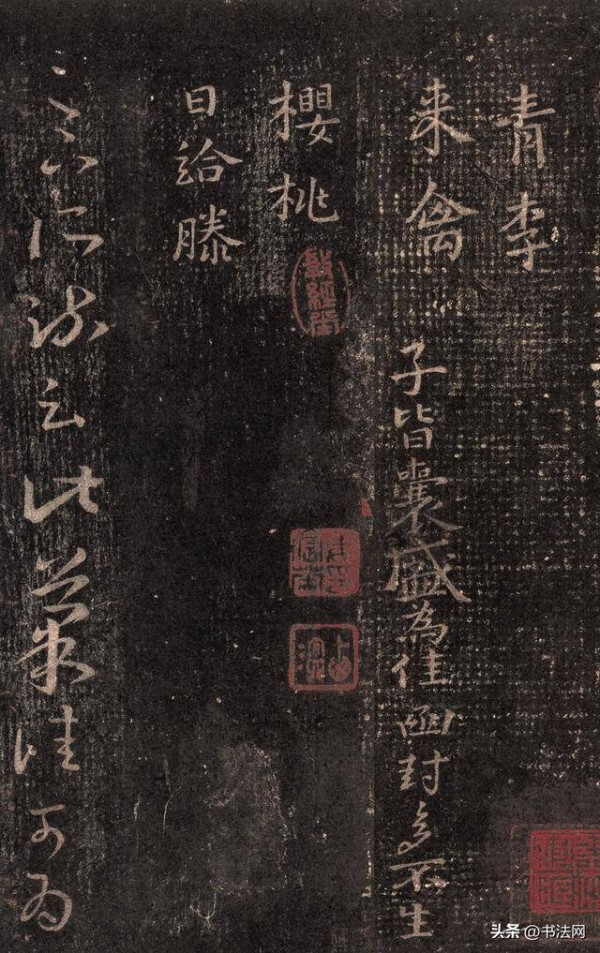 青李
来禽
子皆囊盛為佳函封多不生
櫻桃
日給滕
足下所疏云此菓佳可為
头条 @书法网